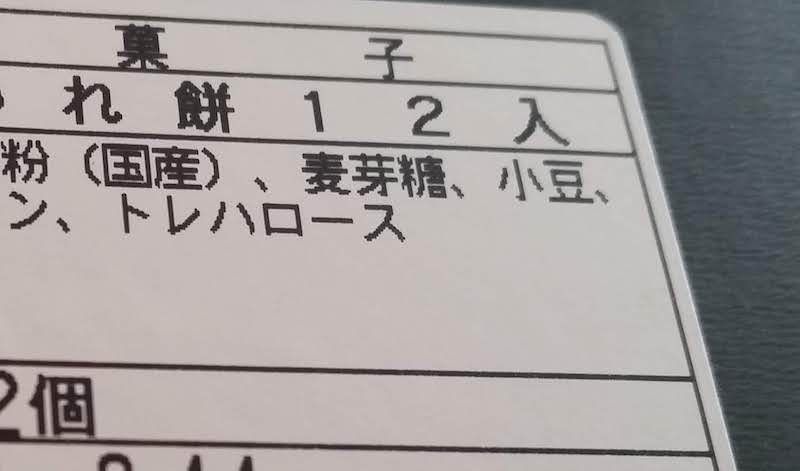 菓子
れ餅12入
粉（国産）、麦芽糖、小豆、
ン、トレハロース
2個